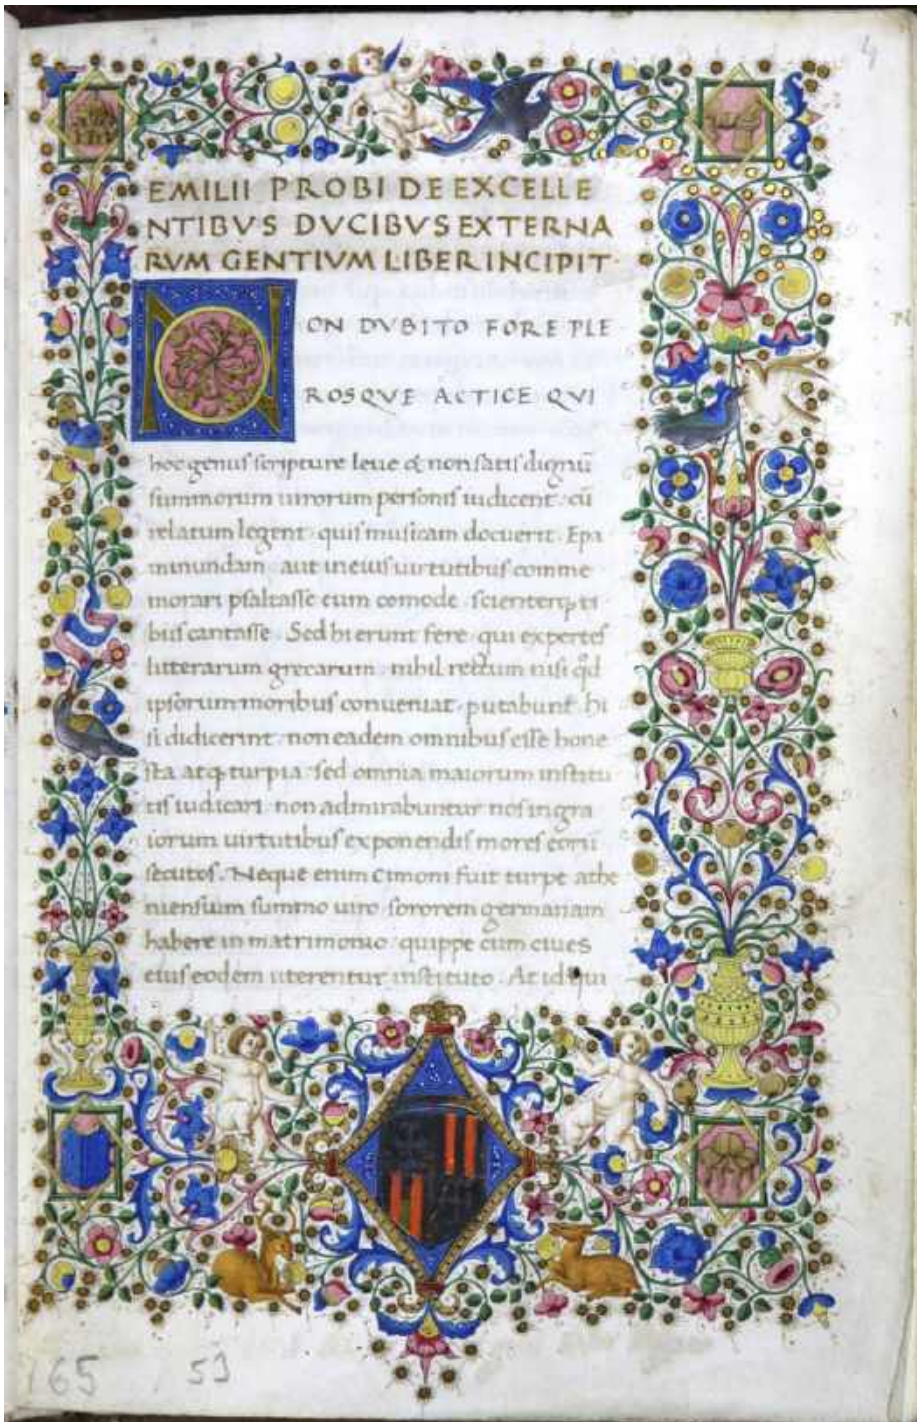 4
EMILII PROBI DE EXCELLE
NTIBVS DVCIBVS EXTERNA
RVM GENTIVM LIBER INCIPIT·
N
ON DVBITO FORE PLE
ROSQVE ACTICE QVI
hoc genus scripture leue & non satis dignũ
summorum uirorum personis iudicent· cũ
relatum legent quis musicam docuerit· Epa
minundam aut in eius uirtutibus comme
morari psaltasse eum comode scienterq; ti
biis cantasse· Sed hi erunt fere qui expertes
litterarum grecarum nihil rectum nisi qd
ipsorum moribus conueniat putabunt· hi
si didicerint non eadem omnibus esse hone
sta atq; turpia sed omnia maiorum institu
tis iudicari non admirabuntur nos in gra
iorum uirtutibus exponendis mores eorũ
secutos· Neque enim Cimoni fuit turpe athe
niensium summo uiro sororem germanam
habere in matrimonio quippe cum ciues
eius eodem uterentur instituto· At id qui
165 53